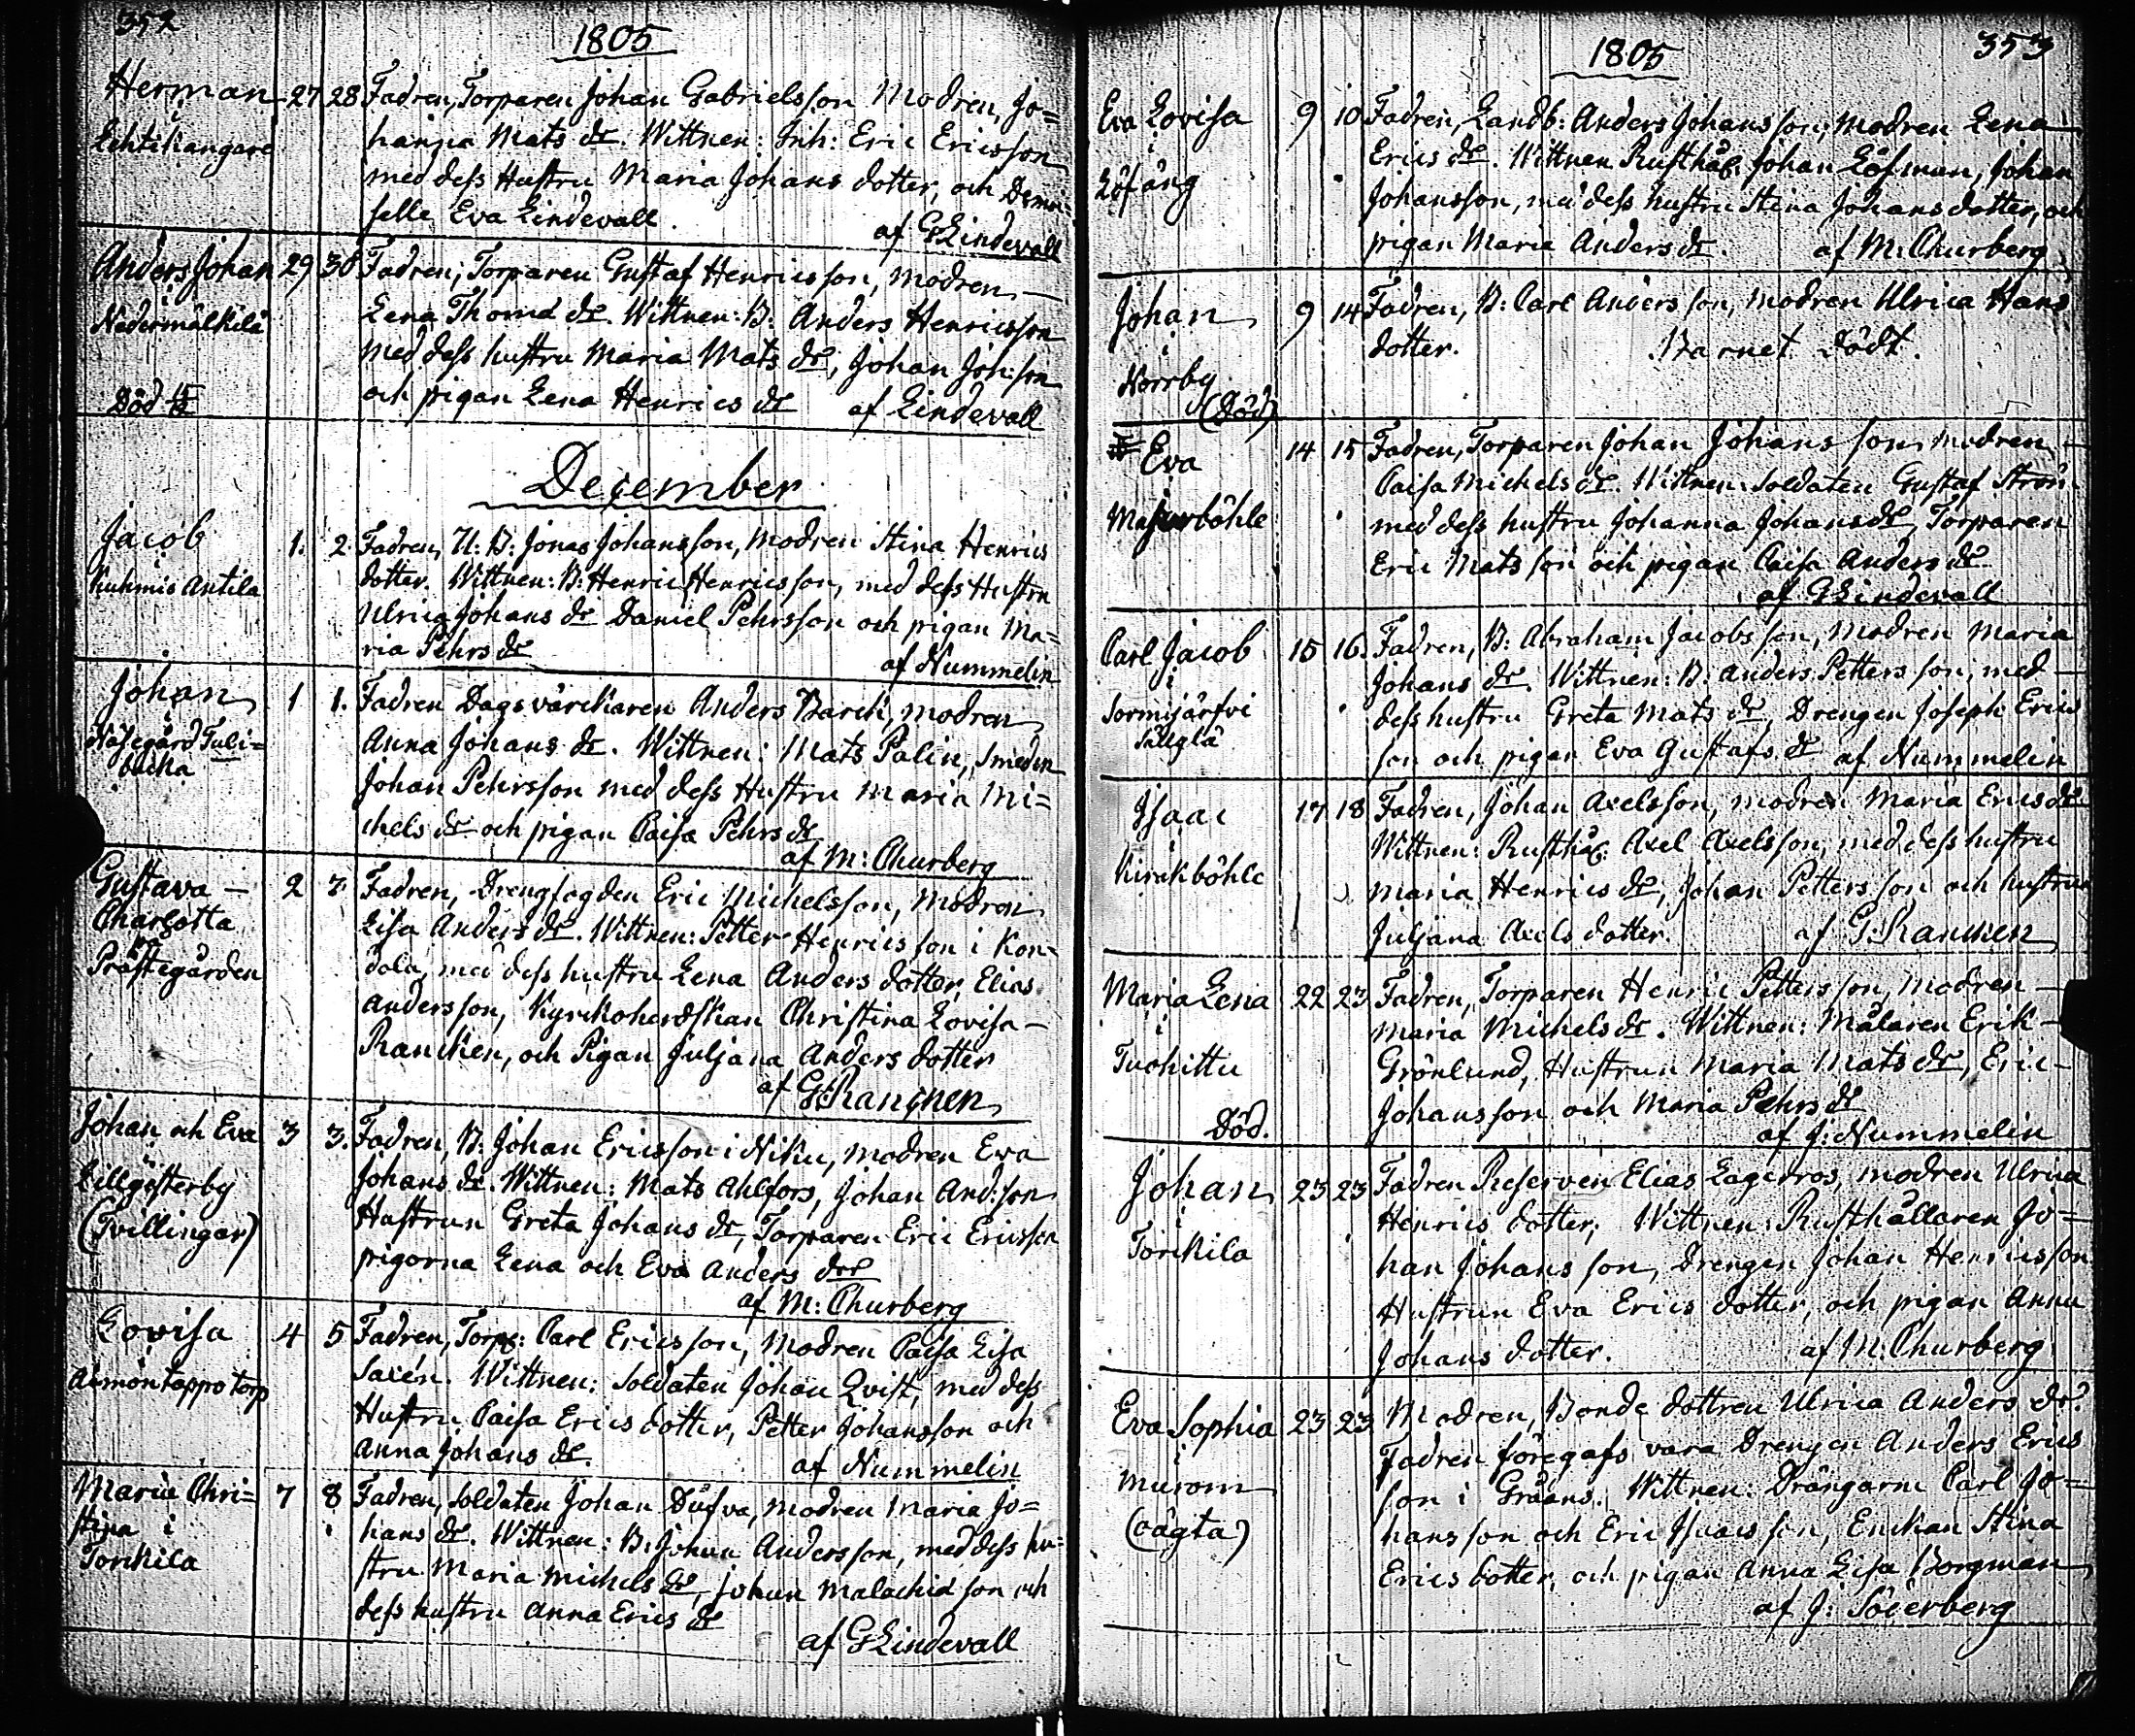 352
1805
Herman 27 28 Fadren, Torparen Johan Gabrielsson Modren, Jo=
i
Lehtikangare hanna Mats dr. Wittnen: Inh: Eric Ericsson
med dess Hustru Maria Johans dotter, och Demoi
selle Eva Lindevall.
af G Lindevall
Anders Johan 29 30 Fadren, Torparen Gustaf Henricsson, modren
i
Nedermälkilä Lena Thomæ dr. Wittnen: B: Anders Henricsson
med dess hustru Maria Mats dr, Johan Joh:son
Död
och pigan Lena Henrics dr af Lindevall
December
Jacob 1. 2 Fadren, U: B: Jonas Johansson, modren Stina Henrics
i
Kuhmis Antila dotter. Wittnen: B: Henric Henricsson, med dess Hustru
Ulrica Johans dr Daniel Pehrsson och pigan Ma=
ria Pehrs dr
af Nummelin
Johan 1 1. Fadren Dagsvärckaren Anders Barck, modren
i
Näsegård Tuli=
backa
Anna Johans dr. Wittnen: Mats Palin, Smeden
Johan Pehrsson med dess Hustru Maria Mi=
chels dr och pigan Caisa Pehrs dr
af M: Churberg
Gustava – 2 7 Fadren, Drengfogden Eric Michelsson, Modren
Charlotta
i
Prästegården
Lisa Anders dr. Wittnen: Petter Henricsson i Kon=
dola, med dess hustru Lena Anders dotter, Elias
Andersson, Kyrckoherdskan Christina Lovisa –
Rancken, och Pigan Juljana Anders dotter
af G: Rancken
Johan och Eva 3 3. Fadren, B: Johan Ericsson i Niku, modren Eva
i
Lillgösterby
(Tvillingar)
Johans dr. Wittnen: Mats Ahlfors, Johan And:son
Hustrun Greta Johans dr, Torparen Eric Ericsson
pigorna Lena och Eva Anders drr
af M: Churberg
Lovisa 4 5 Fadren, Torp: Carl Ericsson, Modren Caisa Lisa
i
Salén. Wittnen: Soldaten Johan Qvist, med dess
Hustru Caisa Erics dotter, Petter Johansson och
Anna Johans dr.
af Nummelin
Maria Chri= 7 8 Fadren, Soldaten Johan Dufva, modren Maria Jo=
stina i
Torckila
hans dr. Wittnen: B: Johan Andersson, med dess hu=
stru Maria Michels dr, Johan Malachiæ son och
dess hustru Anna Erics dr
af G Lindevall
1805
353
Eva Lovisa 9 10 Fadren, Landb: Anders Johansson, Modren Lena
i
Löfäng
Erics dr. Wittnen. Rusthål: Johan Löfman, Johan
Johansson, med dess hustru Stina Johans dotter, och
pigan Maria Anders dr.
af M: Churberg
Johan 9 14 Fadren, B: Carl Andersson, modren Ulrica Hans
i
Norrby
(Död)
dotter.
Barnet Dödt.
Eva 14 15 Fadren, Torparen Johan Johansson, modren
i
Caisa Michels dr. Wittnen: Soldaten Gustaf Ström
med dess hustru Johanna Johans dr, Torparen
Eric Matsson och pigan Caisa Anders dr
af G Lindevall
Carl Jacob 15 16. Fadren, B: Abraham Jacobsson, Modren Maria
i
Sormijärfvi
Johans dr. Wittnen: B: Anders Pettersson, med
dess hustru Greta Mats dr, Drengen Joseph Erics
son och pigan Eva Gustafs dr af Nummelin
Isaac 17 18 Fadren, Johan Axelsson, modren Maria Erics dr
i
Kirakböhle
Wittnen: Rusthål: Axel Axelsson, med dess hustru
Maria Henrics dr, Johan Pettersson och hustrun
Juljana Axels dotter.
af G: Rancken
Maria Lena 22 23 Fadren, Torparen Henric Pettersson, modren
i
Tuohittu
Död.
Maria Michels dr. Wittnen: Målaren Erik
Grönlund, Hustrun Maria Mats dr, Eric
Johansson och Maria Pehrs dr
af J: Nummelin
Johan 23 23 Fadren Reserven Elias Lagerros, modren Ulrica
i
Torckila
Henrics dotter, Wittnen: Rusthållaren Jo=
han Johansson, Drengen Johan Henricsson
Hustrun Eva Erics dotter, och pigan Anna
Johans dotter.
af M: Churberg
Eva Sophia 23 23 Modren, Bonde dottren Ulrica Anders dr.
i
(oägta)
Fadren föregafs vara Drengen Anders Erics
son i Graans. Wittnen: Drängarne Carl Jo=
hansson och Eric Isaacsson, Enckan Stina
Erics dotter, och pigan Anna Lisa Borgman
af J: Söderberg